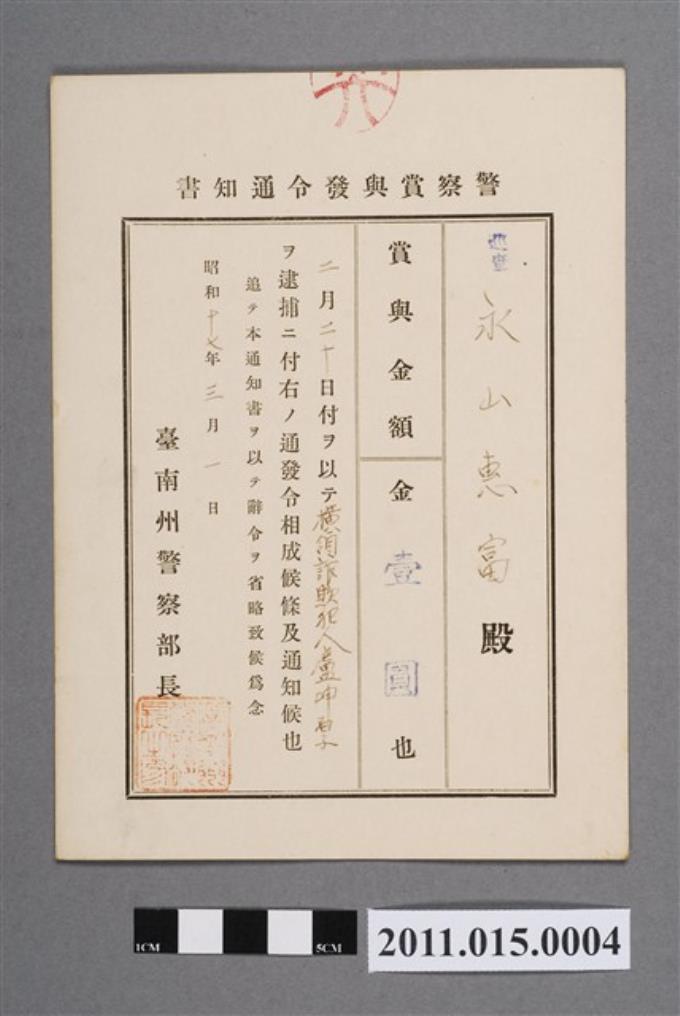 警察賞與發令通知書
巡查 永山惠富 殿
賞與金額
金壹圓也
二月二十日付ヲ以テ橫領詐欺犯人盧坤
ヲ逮捕ニ付右ノ通發令相成候條及通知候也
追テ本通知書ヲ以テ辭令ヲ省略致候爲念
昭和十七年三月一日
臺南州警察部長
1CM
5CM
2011.015.0004